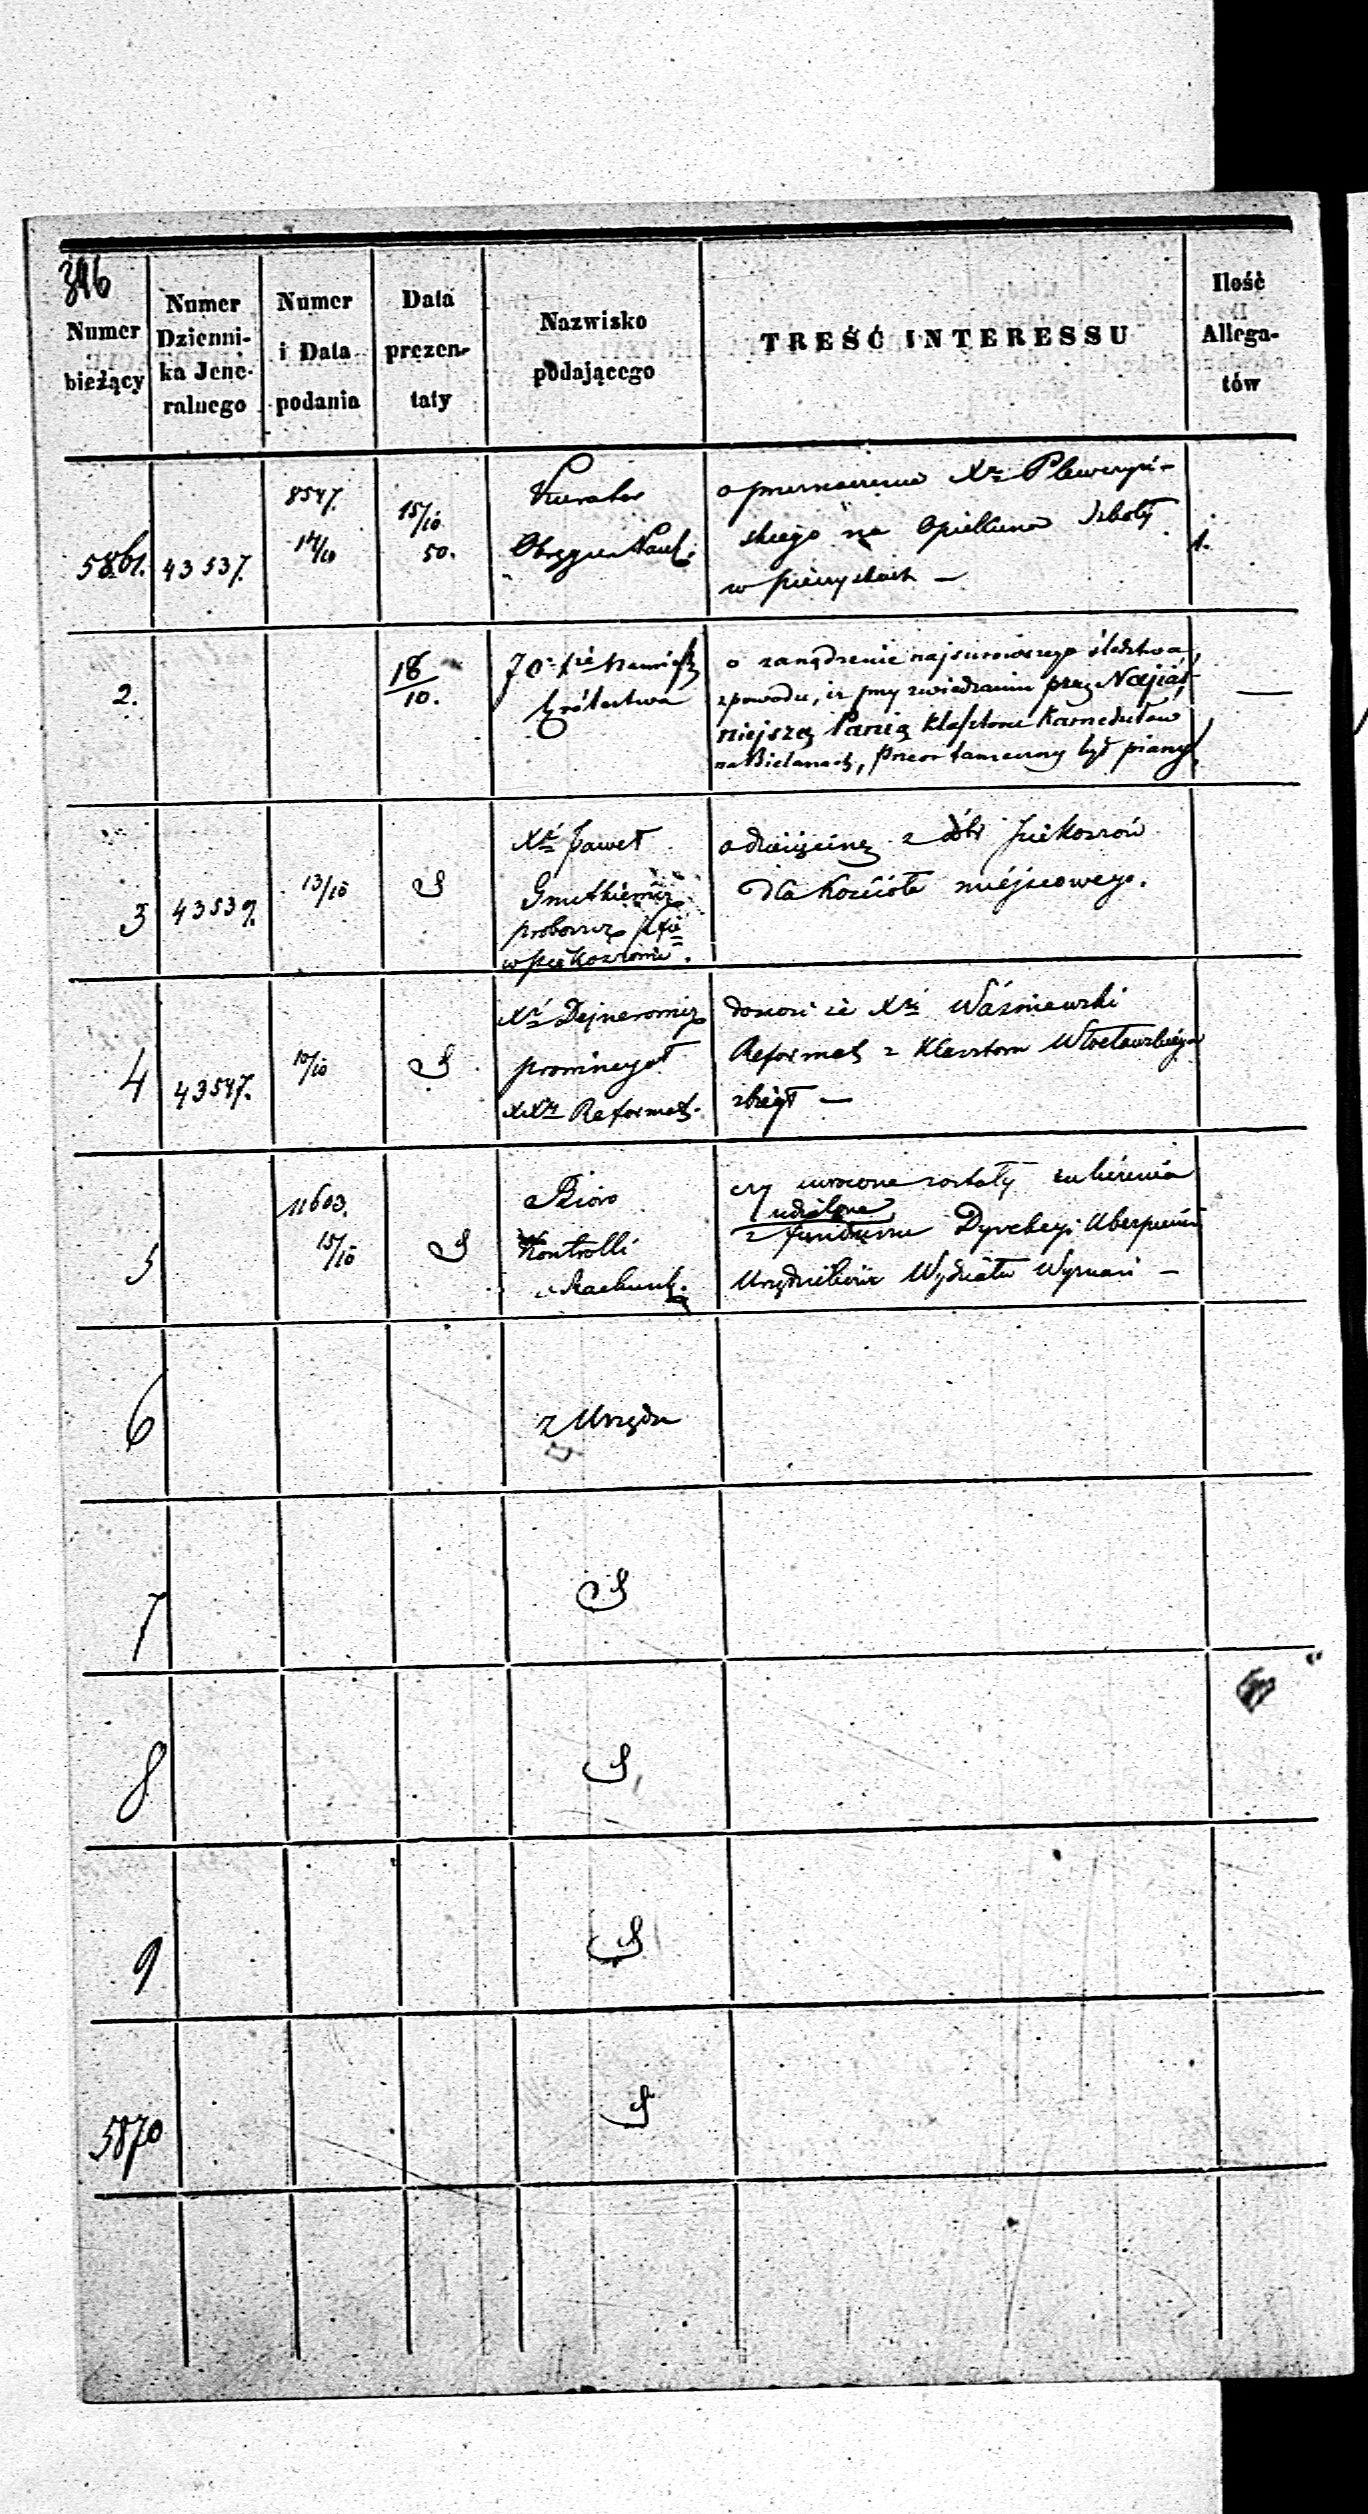 346
Numer
bieżący
Numer
Dzienni-
ka Jene-
ralnego
Numer
i Data
podania
Data
prezen-
taty
Nazwisko
podającego
TREŚĆ INTERESSU
Ilość
Allega-
tów
5861.
43537.
8547.
14/10
15/10
50.
Kurator
Okręgu Nauk:
o przeznaczenie Xa
skiego na Opiekuna Szkoły
w
1.
2.
18
10.
JO. Xże Namiest
Królestwa
o zarządzenie najsurowszego śledztwa,
z powodu, iż przy zwiedzaniu przez Najjaś-
niejszą Panią Klasztoru Kamedułów
na Bielanach, Przeor tameczny był pijany
3
43539.
13/10
Xd Paweł
proboszcz
w
o dziesięcinę z dóbr
dla kościoła miejscowego.
4
43547.
10/10
Xd
prowincyał
XXów Reformat.
donosi że Xdz Waśniewski
Reformat z Klasztoru Włocławskiego
zbiegł —
5
11603.
15/10
Bióro
Kontrolli
Rachunk.
czy zwrócone zostały
udzielone
z funduszu Dyrekcyi Ubezpieczeń
Urzędnikom Wydziału Wyznań —
6
z Urzędu
7
8
9
5870